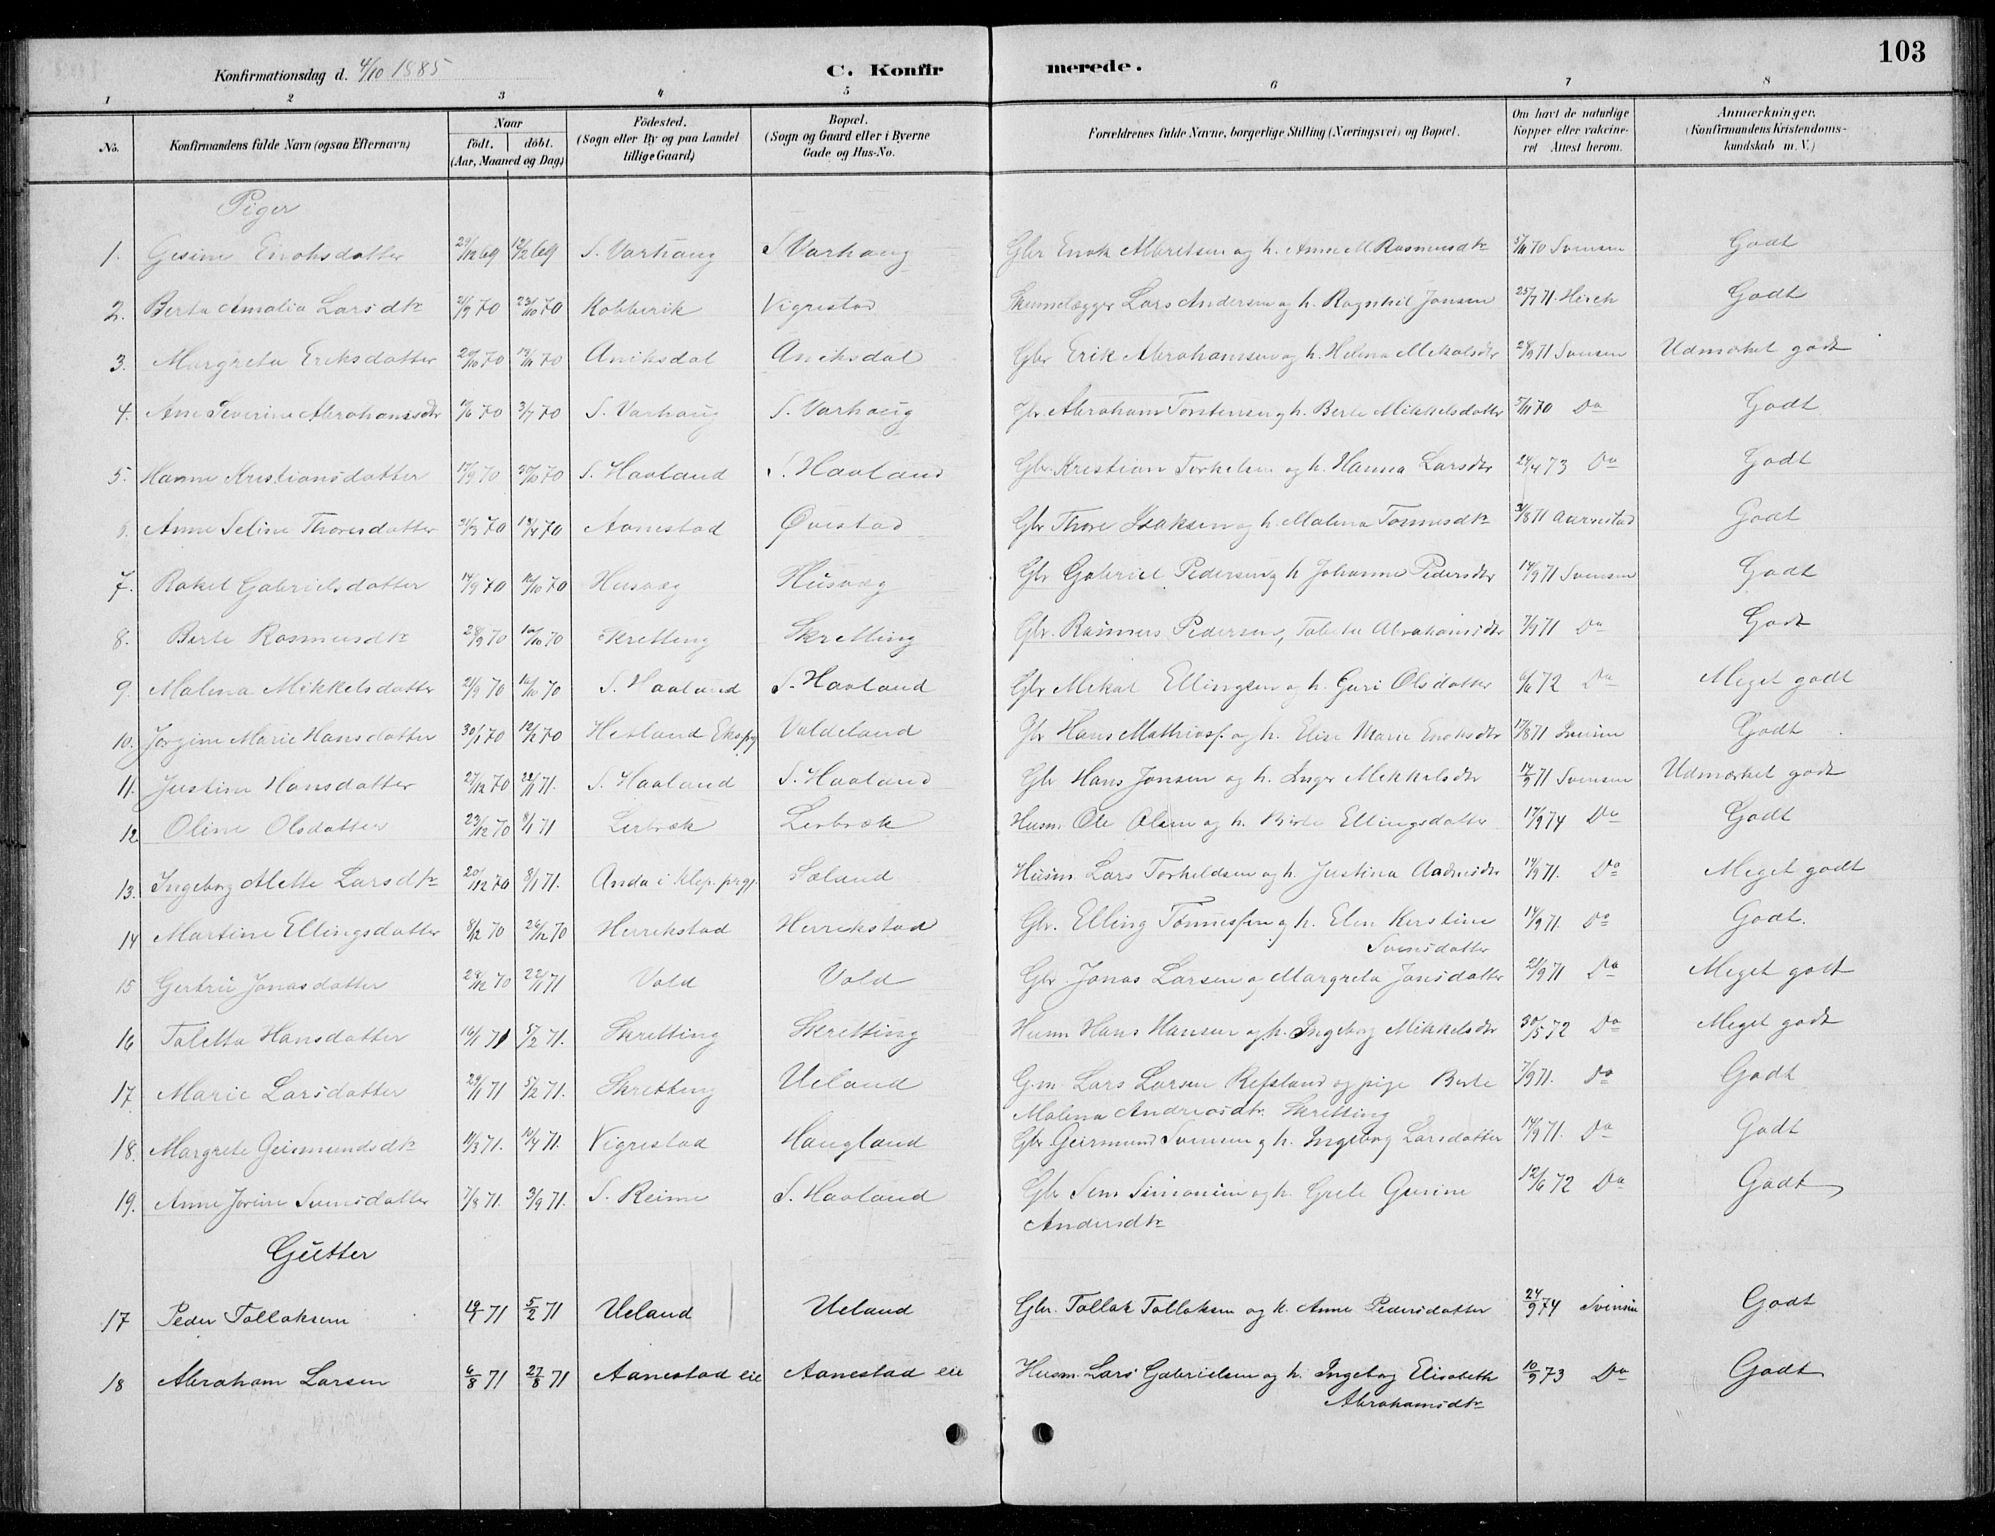 103
Konfirmationsdag d. 4/10 1885 C. Konfirmerede.
1 2 3 4 5 6 7 8
No. Konfirmandens fulde Navn (ogsaa Efternavn) Naar født. døbt. (Aar, Maaned og Dag) Födested. (Sogn eller By og paa Landet tillige Gaard) Bopæl. (Sogn og Gaard eller i Byerne Gade og Hus-No. Forældrenes fulde Navne, borgerlige Stilling (Næringsvei) og Bopæl. Om havt de naturlige Kopper eller vakcineret Attest herom. Anmærkninger. (Konfirmandens Kristendomskundskab m. V.)
Piger
1. Gesine Enoksdatter 29/12 69 S. Varhaug S Varhaug Gbr Enok Albretsen og h. Anne M. Rasmusdtr 5/11 70 Svensen Godt
2. Berta Amalia Larsdtr 21/9 70 23/10 70 Kobberik Vigrestad Lars Andersen og h. Ragnhil Jonsen 25/7 71 Hirch Godt
3. Margreta Eriksdatter 20/10 70 13/11 70 Aniksdal Aniksdal Gbr Erik Abrahamsen og h. Helena Mikalsdtr 28/9 71 Svensen Udmærket godt
4. Ane Severine Abrahamsdtr 3/7 70 S. Varhaug S. Varhaug Gbr Abraham Torstensen og h. Berte Mikkelsdatter 5/11 70 Do Godt
5. Hanne Kristiansdatter 17/9 70 30/10 70 S. Haaland S. Haaland Gbr. Kristian Torkelsen og h. Hanna Larsdtr 24/4 73 Do Godt
Anne Seline Thoresdatter 31/3 70 18/4 70 Aanestad Øvestad Gbr Thore Isaksen og h. Malena Tønnesdtr 31/8 71 Aarrestad Godt
7. Rakel Gabrielsdatter 14/9 70 16/10 70 Husvæg Husvæg Gbr Gabriel Pedersen og h Johanne Pedersdtr 14/9 71 Svensen Godt
8. Berte Rasmusdtr 28/9 70 16/10 70 Skretting Skretting Gbr. Rasmus Pedersen, Taletta Abrahamsdtr 7/9 71 Do Godt
9. Malena Mikkelsdatter 21/9 70 16/10 70 S. Haaland S. Haaland Gbr Mikal Ellingsen og h. Guri Olsdatter 6/6 72 Do Meget godt
10. Jorgine Marie Hansdatter 30/1 70 12/2 70 Hetland Valdeland Gbr Hans Mathiass. og h. Elise Marie Enoksdtr 17/8 71 Godt
11. Justine Hansdatter 27/12 70 22/1 71. S. Haaland S. Haaland Gbr Hans Jonsen og h. Inger Mikkelsdtr 14/9 71 Svensen Udmærket godt
12 Oline Olsdatter 23/12 70 8/1 71 Lerbræk Lerbræk Husm. Ole Olsen og h. Berte Ellingsdatter 17/9 74 Do Godt
13. Ingeborg Alette Larsdtr 20/12 70 8/1 71. Anda i Klep. prgj. Sæland Husm. Lars Torkeldsen og h. Justina Aadnesdtr 14/9 71. Do Meget godt
14 Martine Ellingsdatter 8/12 70 26/12 70 Herrekstad Herrekstad Gbr. Elling Tønnessen og h. Elen Kerstine 14/9 71. Do Godt.
Svensdatter
15 Gertrü Jonasdatter 28/12 70 22/1 71 Vold Vold Gbr. Jonas Larsen og Margreta Jonsdatter 21/9 71 Do Meget godt
16 Taletta Hansdatter 16/1 71 5/2 71. Skretting Skretting Husm Hans Hansen og h. Ingeborg Mikkelsdtr 30/5 72 Do Meget godt
17. Marie Larsdatter 29/1 71 5/2 71. Skretting Ueland G.m. Lars Larsen Refsland og pige Berte 7/9 71. Do Godt
Malena Andreasdtr. Skretting
18. Margrete Geirmundsdtr 11/3 71. 10/4 71. Vigrestad Haugland Gbr. Geirmund Svensen og h. Ingeborg Larsdatter 14/9 71. Do Godt
19. Anne Svensdatter 7/8 71. 3/9 71. S. Reime S. Haaland Gbr Sven Simonsen og h. Grete Gurine 12/6 72 Do Godt
Andersdtr
Gütter
17 Peder Tollaksen 19/1 71 5/2 71 Ueland Ueland Gbr. Tollak Tollaksen og h. Anne Pedersdatter 24/9 74 Svensen Godt
18 Abraham Larsen 6/8 71 27/8 71 Aanestad eie Aanestad eie Husm. Lars Gabrielsen og h. Ingeborg Elisabeth 10/9 73 Do Godt
Abrahamsdtr